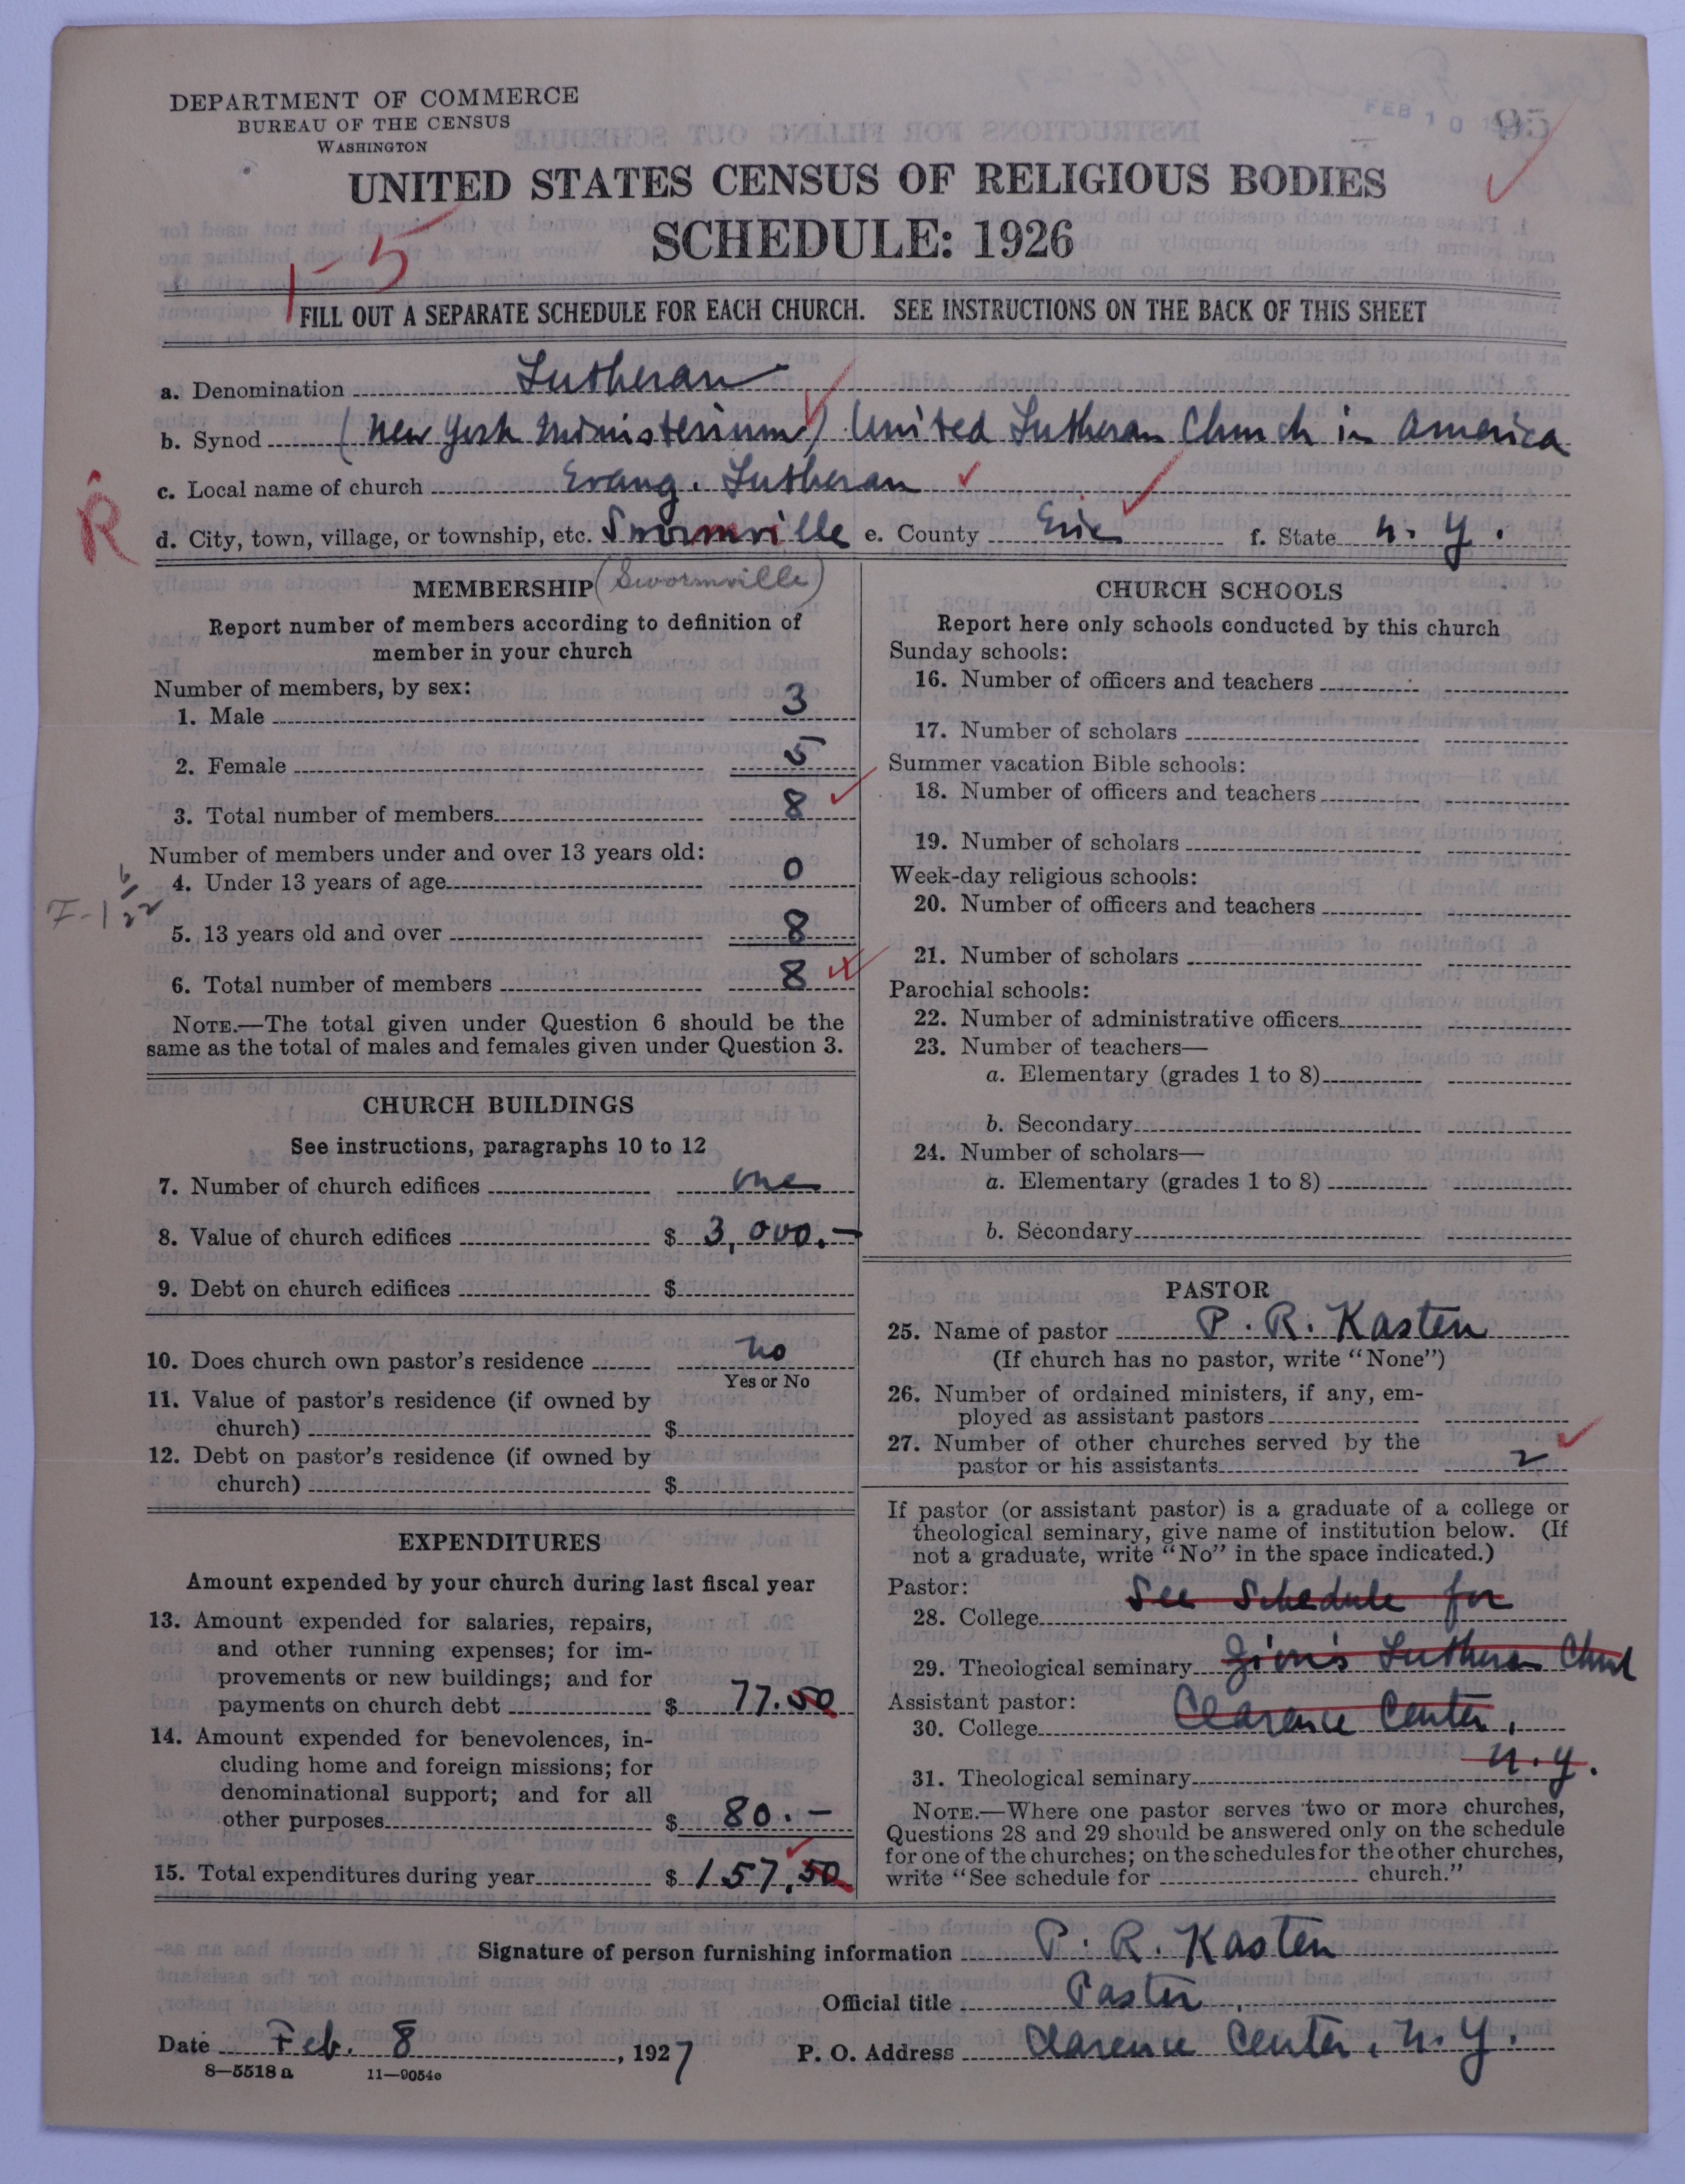 DEPARTMENT OF COMMERCE
BUREAU OF THE CENSUS
WASHINGTON
FEB 10
95
UNITED STATES CENSUS OF RELIGIOUS BODIES
SCHEDULE: 1926
1-5
FILL OUT A SEPARATE SCHEDULE FOR EACH CHURCH. SEE INSTRUCTIONS ON THE BACK OF THIS SHEET
a. Denomination Lutheran
b. Synod (New York Ministerium) United Lutheran Church in America
c. Local name of church Evang. Lutheran
R
d. City, town, village, or township, etc. Swormville e. County Erie f. State N. Y.
MEMBERSHIP (Swormville)
Report number of members according to definition of
member in your church
Number of members, by sex:
1. Male 3
2. Female 5
3. Total number of members 8
Number of members under and over 13 years old:
4. Under 13 years of age 0
5. 13 years old and over 8
6. Total number of members 8
NOTE.—The total given under Question 6 should be the
same as the total of males and females given under Question 3.
CHURCH BUILDINGS
See instructions, paragraphs 10 to 12
7. Number of church edifices one
8. Value of church edifices $ 3,000.-
9. Debt on church edifices $
10. Does church own pastor's residence No
Yes or No
11. Value of pastor's residence (if owned by
church) $
12. Debt on pastor's residence (if owned by
church) $
EXPENDITURES
Amount expended by your church during last fiscal year
13. Amount expended for salaries, repairs,
and other running expenses; for im-
provements or new buildings; and for
payments on church debt $ 77.50
14. Amount expended for benevolences, in-
cluding home and foreign missions; for
denominational support; and for all
other purposes $ 80.-
15. Total expenditures during year $ 157.50
CHURCH SCHOOLS
Report here only schools conducted by this church
Sunday schools:
16. Number of officers and teachers
17. Number of scholars
Summer vacation Bible schools:
18. Number of officers and teachers
19. Number of scholars
Week-day religious schools:
20. Number of officers and teachers
21. Number of scholars
Parochial schools:
22. Number of administrative officers
23. Number of teachers—
a. Elementary (grades 1 to 8)
b. Secondary
24. Number of scholars—
a. Elementary (grades 1 to 8)
b. Secondary
PASTOR
25. Name of pastor P. R. Kasten
(If church has no pastor, write "None")
26. Number of ordained ministers, if any, em-
ployed as assistant pastors
27. Number of other churches served by the
pastor or his assistants 2
If pastor (or assistant pastor) is a graduate of a college or
theological seminary, give name of institution below. (If
not a graduate, write "No" in the space indicated.)
Pastor:
28. College See Schedule for
29. Theological seminary Zion's Lutheran Church
Assistant pastor:
30. College Clarence Center,
31. Theological seminary N.Y.
NOTE.—Where one pastor serves two or more churches,
Questions 28 and 29 should be answered only on the schedule
for one of the churches; on the schedules for the other churches,
write "See schedule for church."
Signature of person furnishing information P. R. Kasten
Official title Pastor
Date Feb. 8, 1927 P. O. Address Clarence Center, N. Y.
8—5518 a 11—9054c